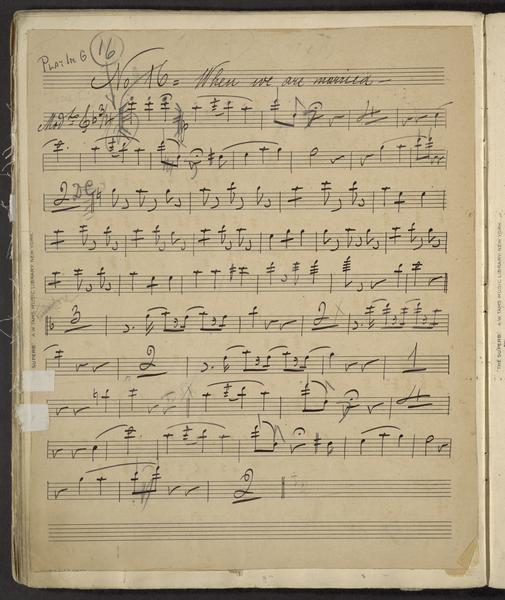 PLAY IN G
16
No 16 = When we are married -
Modto
4
2 DC
3
2
2
1
4
2
"THE SUPERB" A.W. TAMS MUSIC LIBRARY NEW YORK
"THE SUPERB" A.W. TAMS MUSIC LIBRARY NEW YORK